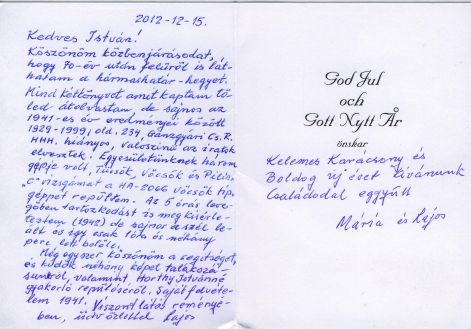 2012-12-15.
Kedves István!
Köszönöm közbenjárásodat,
hogy 70-év után felülről is lát-
hatam a hármashatár-hegyet.
Mind kéttőnyvet amit kaptam tő
led átolvastam de sajnos az
1941-es év eredményei között
1929-1999; old. 234, Ganzgyári Cs. R.
HHH, hiányos, valószinü az iratok
elvesztek. Egyesületünknek három
gépje volt, Tücsök, Vöcsök és Pilis,
"C" vizsgámat a HA-2066 Vöcsök tip.
géppel repültem. Az 5 órás leve-
gőben tartozkodást is megkisérle-
teztem (1942) de sajnos a szél le-
állt os igy csak 1 óra és néhány
perc lett belőle.
Még egyszer köszönöm a segitséget,
és küldök néhány képet találkozá-
sunkról, valamint Horthy Istvánné
gyakorló repüléséről. Saját felvéte-
lem 1941. Viszont látás reményé-
ben, üdvözlettel Lajos
God Jul
och
Gott Nytt År
önskar
Kelemes Karacsony és
Boldog új évet kívánunk
Családodal együtt
Mária és Lajos